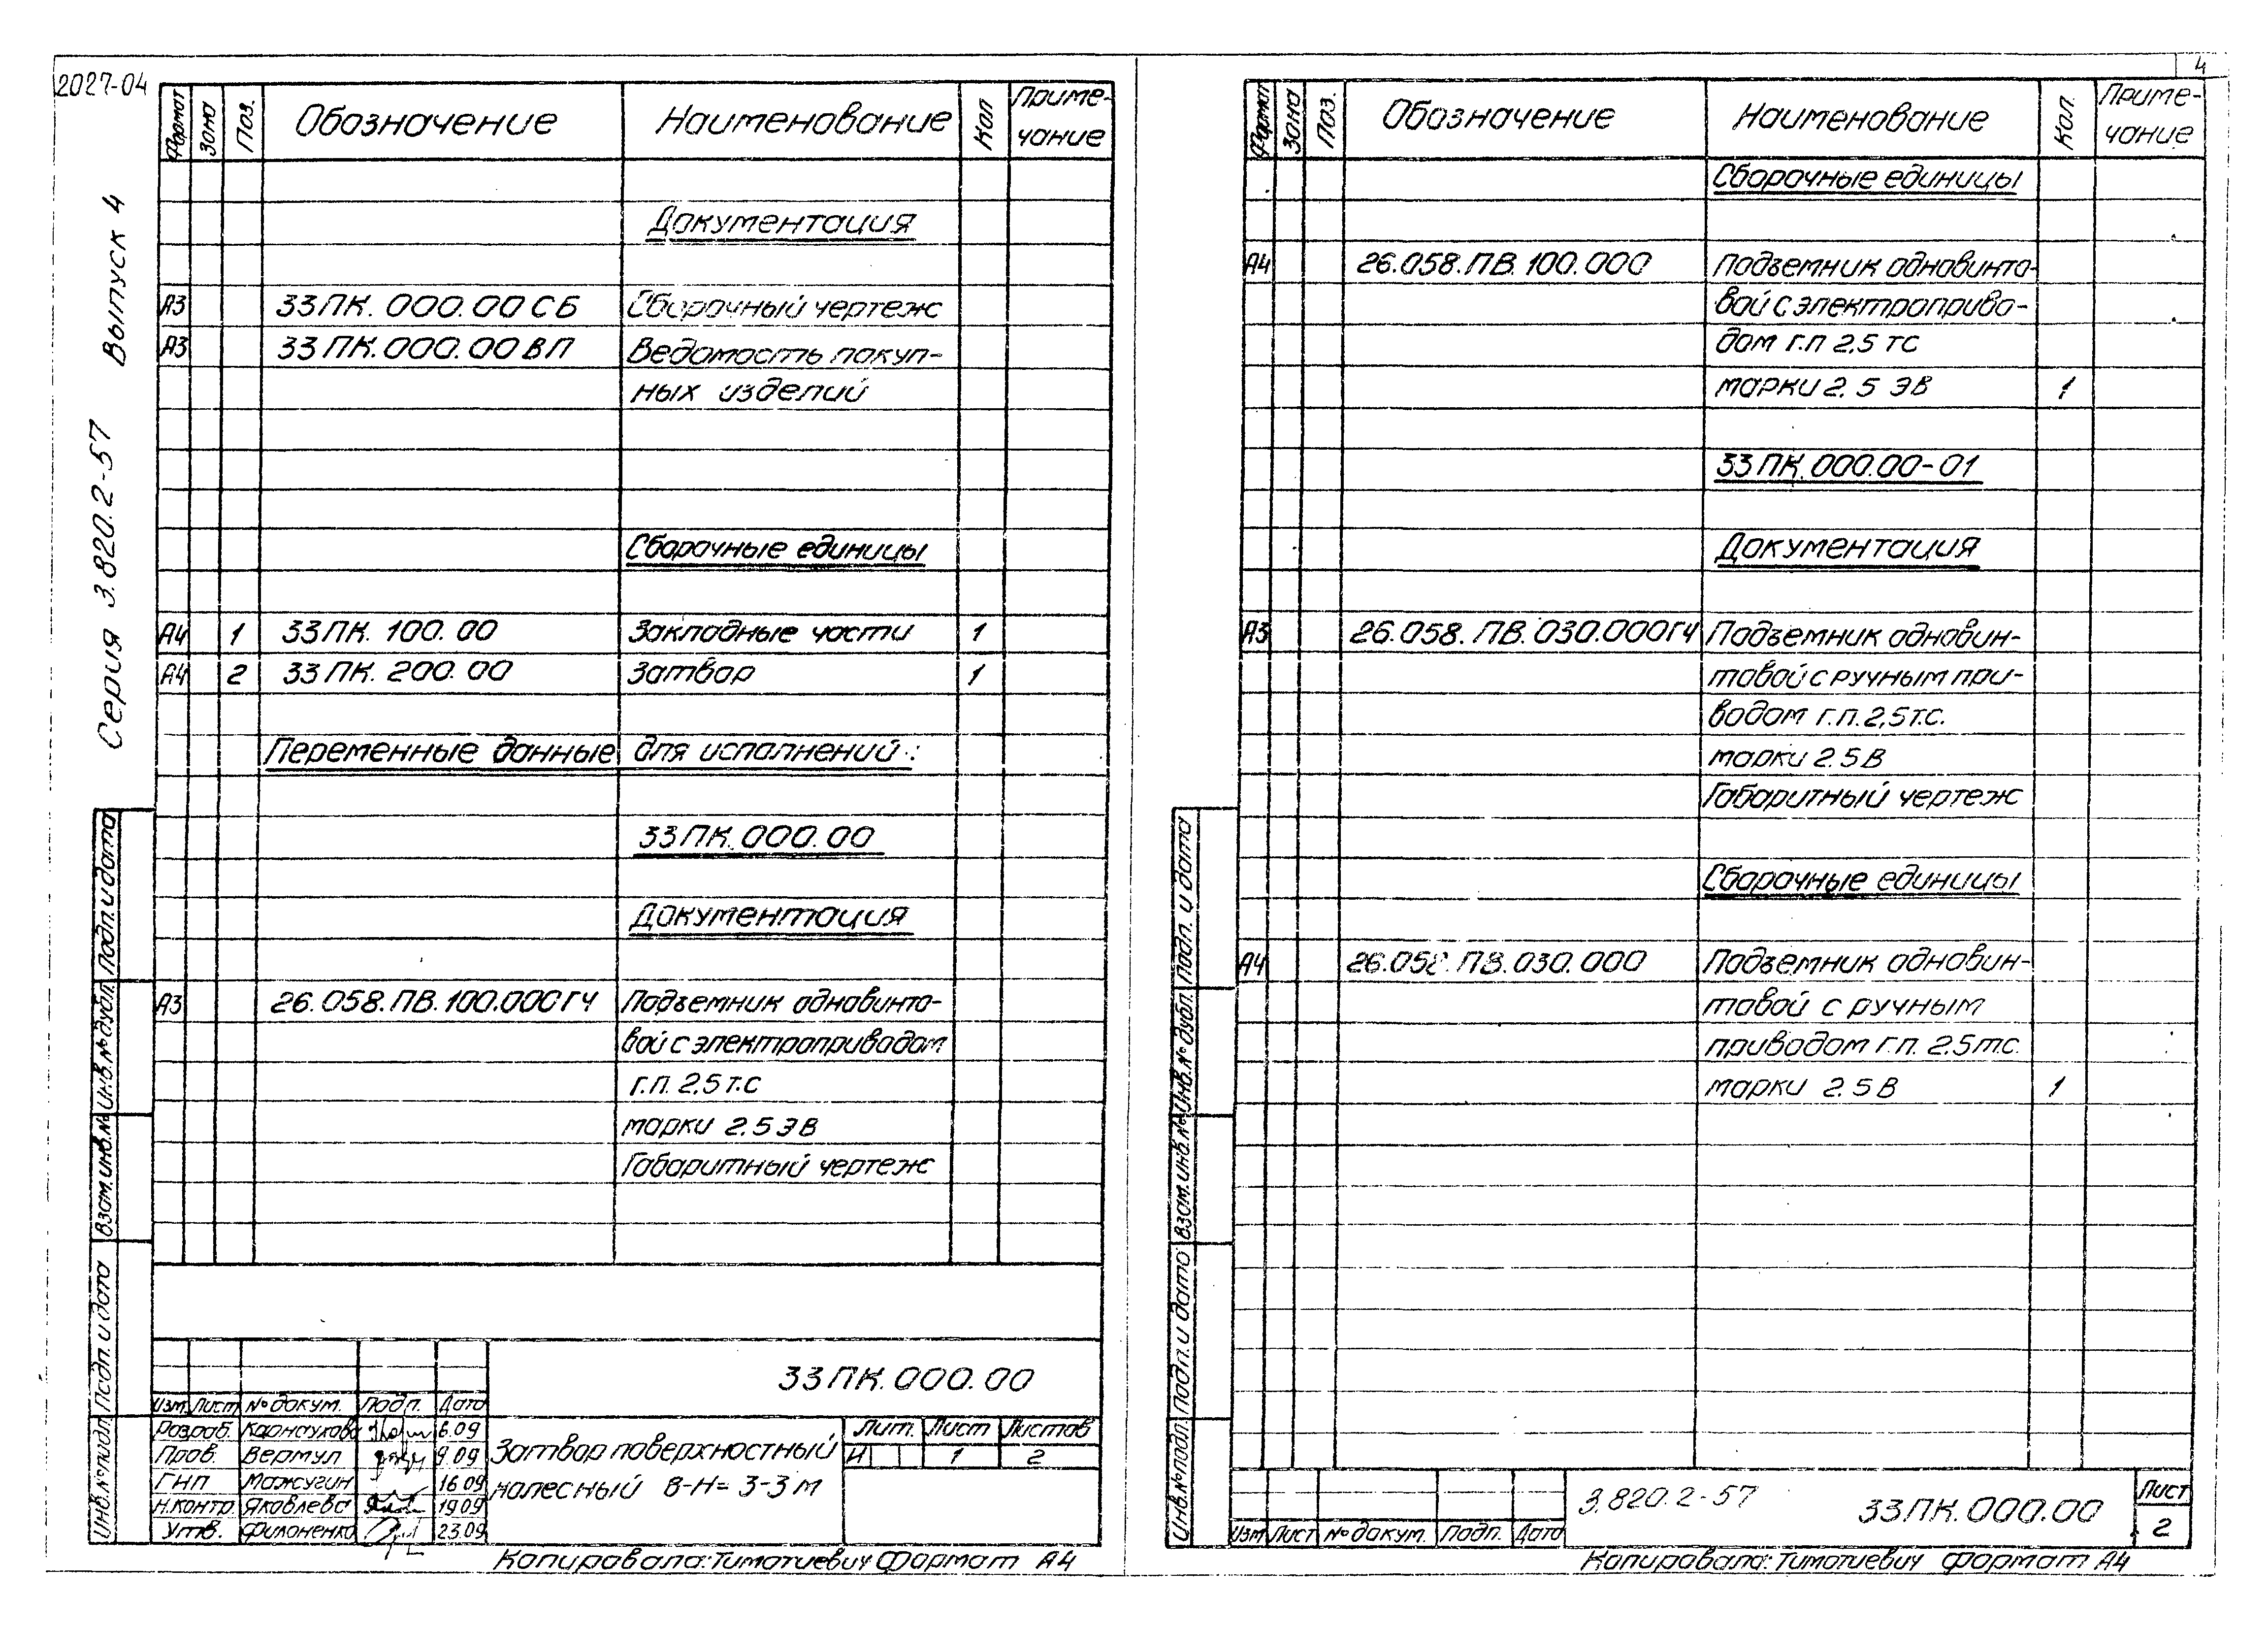 2027-04
Серия 3.820.2-57 Выпуск 4
Формат Зона Поз. Обозначение Наименование Кол Приме-
чание
Документация
А3 33ПК.000.00СБ Сборочный чертеж
А3 33ПК.000.00ВП Ведомость покуп-
ных изделий
Сборочные единицы
А4 1 33ПК.100.00 Закладные части 1
А4 2 33ПК.200.00 Затвор 1
Переменные данные для исполнений:
33ПК.000.00
Документация
А3 26.058.ПВ.100.000ГЧ Подъемник одновинто-
вой с электроприводом
г.п. 2,5 т.с
марки 2.5ЭВ
Габаритный чертеж
Подп. и дата
Инв.№дубл.
Взам.инв.№
Подп. и дата
Инв.№подл.
33ПК.000.00
Изм. Лист №докум. Подп. Дата
Разраб. Карнаухова 6.09
Пров. Вермул 9.09
ГНП Мажугин 16.09
Н.контр. Яковлева 19.09
Утв. Филоненко 23.09
Затвор поверхностный
колесный В-Н=3-3м
Лит. Лист Листов
И 1 2
Копировала: Тимотиевич формат А4
4
Формат Зона Поз. Обозначение Наименование Кол. Приме-
чание
Сборочные единицы
А4 26.058.ПВ.100.000 Подъемник одновинто-
вой с электроприво-
дом г.п 2,5 тс
марки 2.5 ЭВ 1
33ПК.000.00-01
Документация
А3 26.058.ПВ.030.000ГЧ Подъемник одновин-
товой с ручным при-
водом г.п.2,5т.с.
марки 2.5В
Габаритный чертеж
Сборочные единицы
А4 26.058.ПВ.030.000 Подъемник одновин-
товой с ручным
приводом г.п. 2,5т.с.
марки 2.5В 1
Подп. и дата
Инв.№дубл.
Взам.инв.№
Подп. и дата
Инв.№подл.
Изм Лист №докум. Подп. Дата
3.820.2-57 33ПК.000.00
Лист
2
Копировала: Тимотиевич формат А4